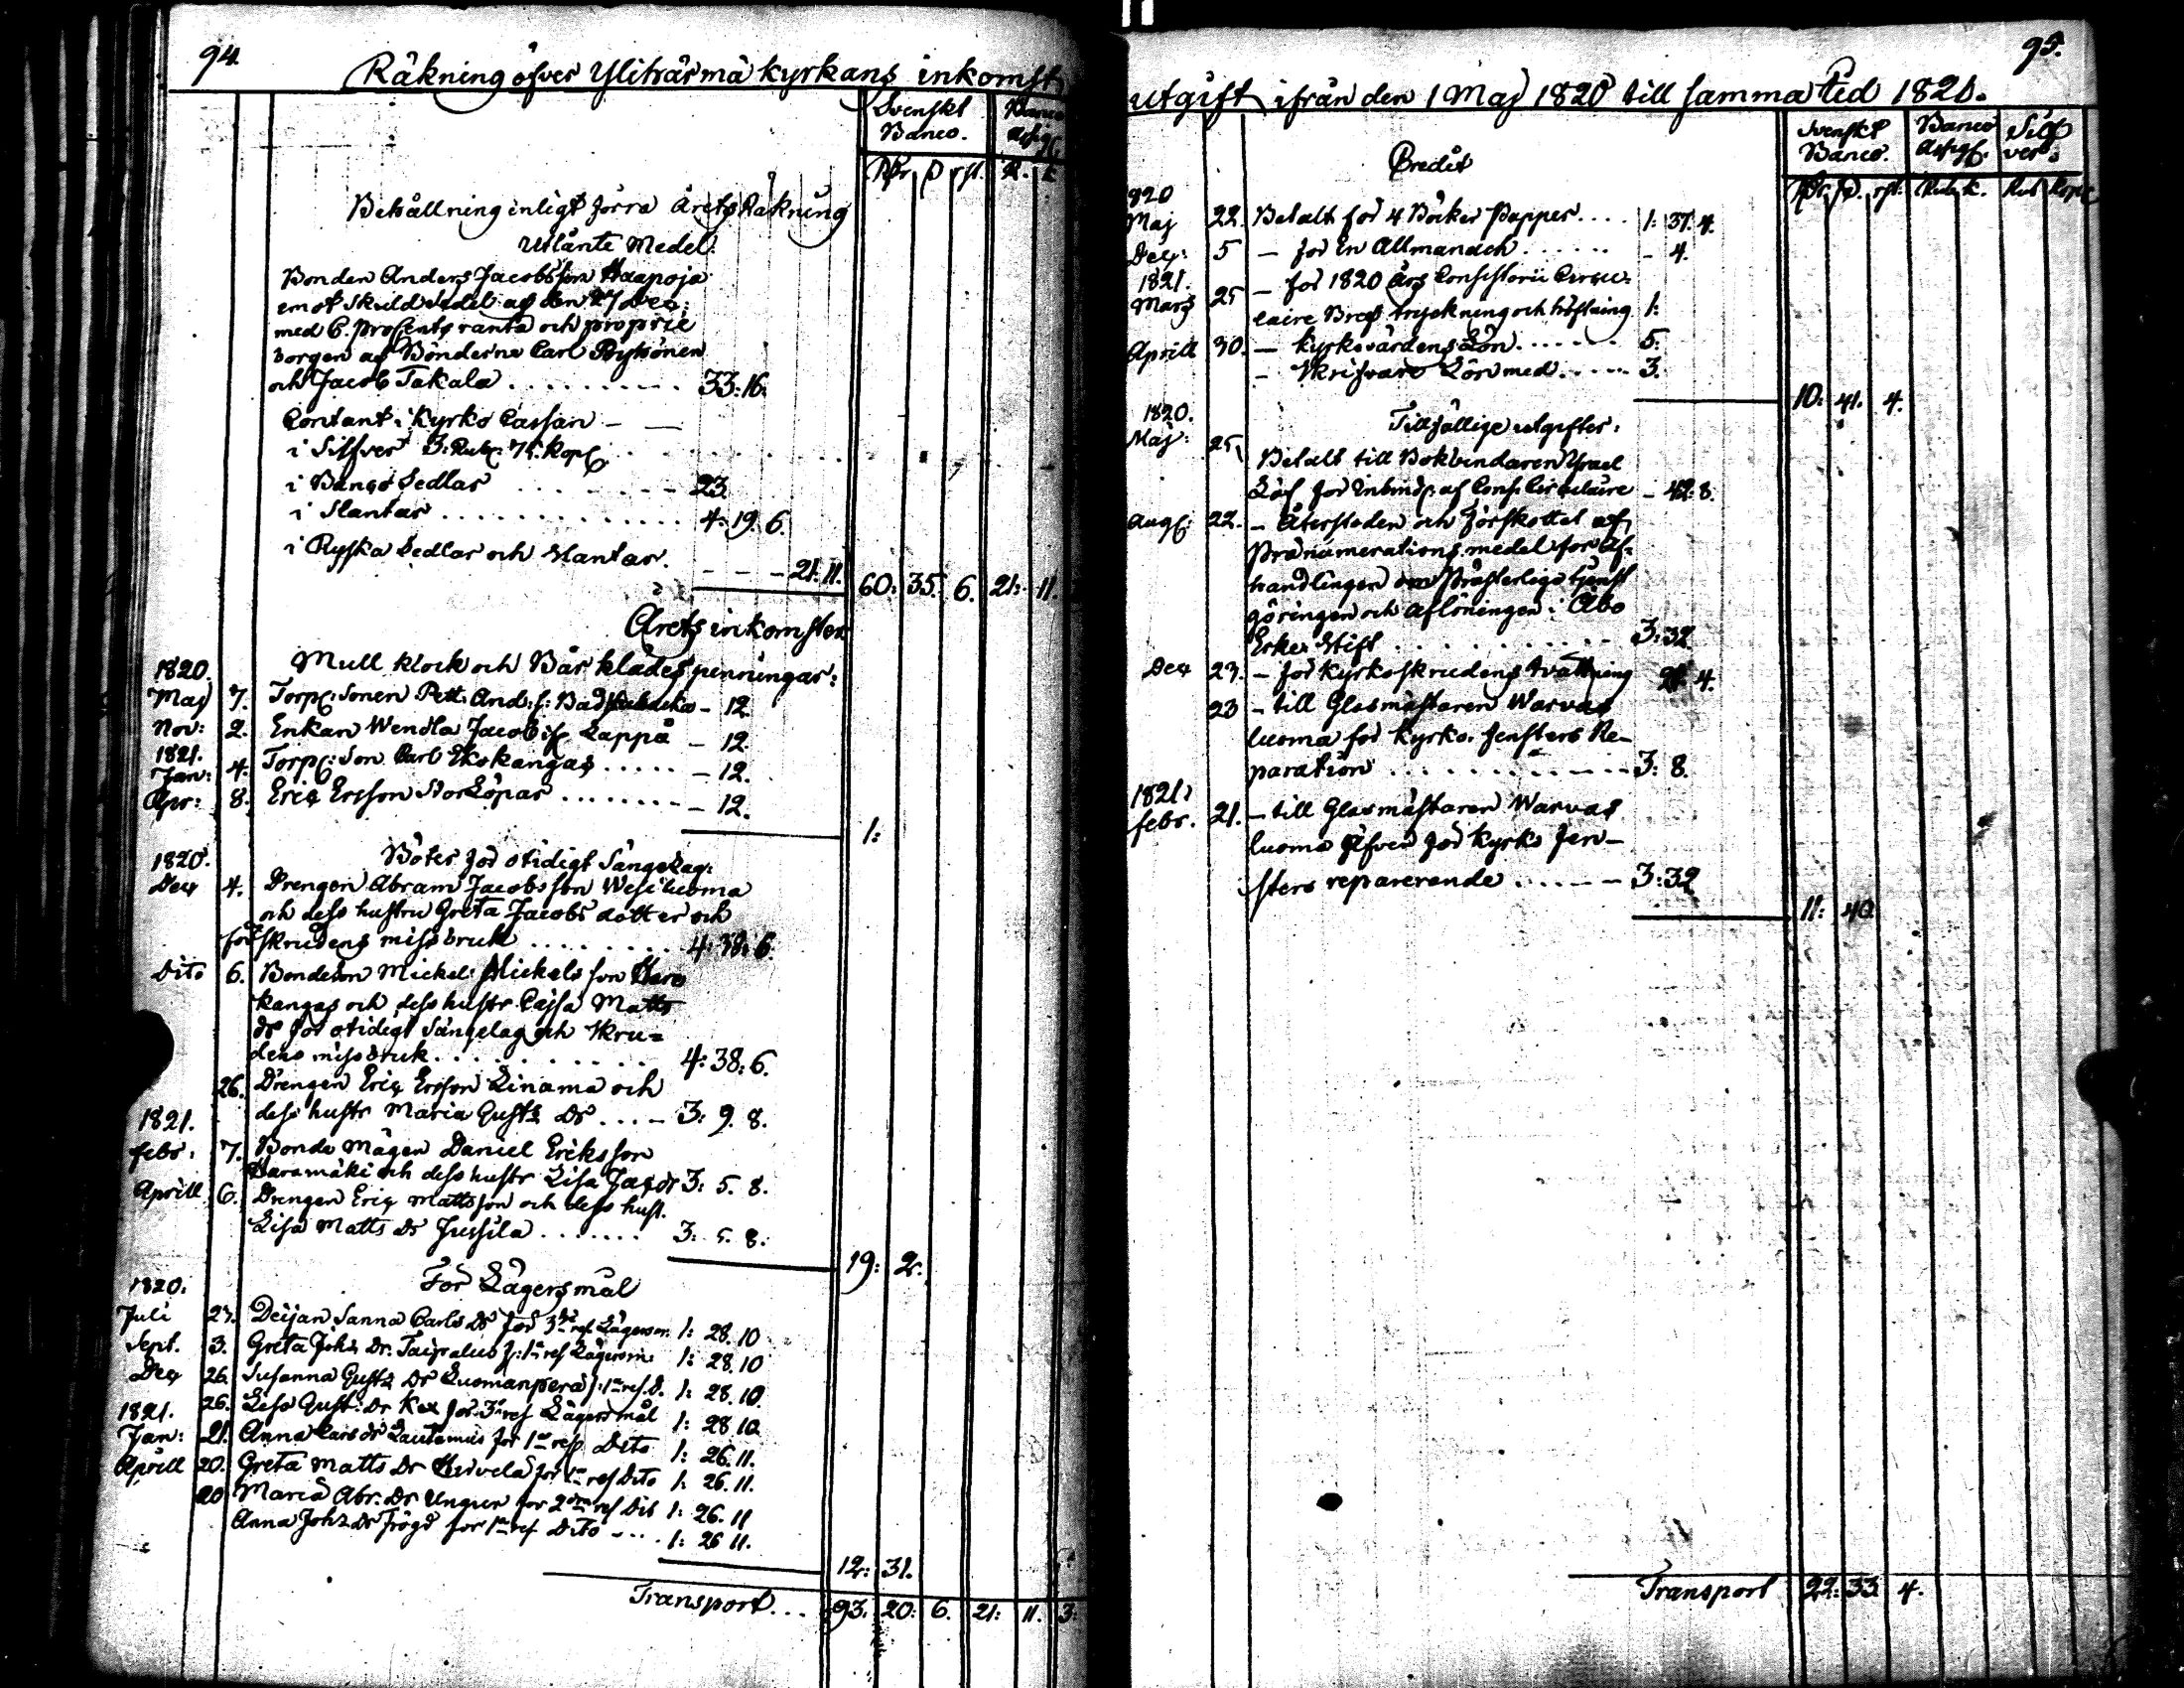 94.
Räkning öfver Ylihärmä kyrkans inkomst
Svenskt Banco.
Banco Assign.
Rdr ß rst. R. K.
Behållning enligt förra Årets Räkning
Utlänte Medel.
Bonden Anders Jacobsson Haapoja
emot skuldsedel af den 27 Dec:
med 6. Procents ränta och proprie
borgen af Bönderne Carl
och Jacob Takala . . . . . . . . . . 33: 16.
Contant i Kyrko Cassan
i Silfver 3: Rub: 75. Kop:
i Banco Sedlar . . . . . . . 23
i Slantar . . . . . . . . . . . . 4: 19. 6.
i Ryska Sedlar och Slantar. - - - 21. 11.
60: 35. 6. 21: 11.
Årets inkomster
1820. Mull klock och Bårklädes penningar:
Maj 7. Torp: Sonen Pett: And: s: - 12.
Nov: 2. Enkan Wendla Jacobs Lappä - 12.
1821.
Jan: 4. Torp: Son Carl Ekokangas . . . . . - 12.
Apr: 8. Eric Ersson Storlöpar . . . . . . . . - 12.
1:
1820. Böter för otidigt Sängelag:
Dec 4. Drengen Abram Jacobsson Wesiluoma
och dess hustru Greta Jacobs dotter och
för skrudens missbruk . . . . . . . . . 4: 38: 6.
Dito 6. Bondeson Mickel Mickelsson Haro
kangas och dess hustr. Cajsa Matts
dr för otidigt Sängelag och Skru=
dens missbruk. . . . . . . . . . . 4: 38: 6.
26. Drengen Eric Ersson Linama och
dess hustr Maria Gusts dr . . . - 3: 9. 8.
1821.
febr: 7. Bonde Mågen Daniel Eriksson
Haramäki och dess hustr Lisa Jac dr 3: 5. 8.
Aprill 6. Drengen Eric Mattsson och dess hust.
Lisa Matts dr Jussila . . . . . . . 3: 5. 8.
19: 2.
1820. För Lägersmål
Juli 23. Deijan Sanna Carls dr för 3dje res. Lägersm. 1: 28. 10
Sept. 3. Greta Johs Dr. Taipalus f: 1sta res Lägersm: 1: 28. 10
Dec 26. Susanna Gusts dr Luomanperä f: 1sta res. d. 1: 28. 10.
26. Lisa Gust: dr Kex för 3e res Lägersmål 1: 28. 10.
1821.
Jan: 21. Anna Cars dr Lautamus för 1sta res Dito 1: 26. 11.
Aprill 20. Greta Matts dr Hirvelä för 1sta res Dito 1: 26. 11.
20 Maria Abr: dr Unguer för 2dra res Dit 1: 26. 11
Anna Johs dr Frögd för 1sta res Dito - . . . 1: 26 11.
12: 31.
Transport. . . 93. 20: 6. 21: 11. 3:
95.
utgift ifrån den 1 Maj 1820 till samma tid 1821.
Svenskt Banco.
Banco Assign.
Silfver:
Rdr. ß. rst. Rub. k. Rub Kopc
Credit
1820
Maj 22. Betalt för 4 Böcker Papper. . . . 1: 37. 4.
Dec: 5 - för en Allmanach . . . . . . - 4.
1821.
Mars 25 - för 1820 års Consistorii Circu-
laire Bref tryckning och häftning 1:
Aprill 30. - Kyrkovärdens Lön . . . . . . 5:
- Skrifvare Lön med. . . . . 3.
10: 41. 4.
1820. Tillfällige utgifter:
Maj: 25, Betalt till Bokbindaren Israel
Löf för inbindn: af Cons: Cirkulaire - 42: 8.
Aug: 22. - Återstoden och förskottet af
Pränumerations medel för Af-
handlingen om Prästerliga tjenst
göringen och aflöningen i Åbo
Erke Stift . . . . . . . . . . . . 3: 32
Dec 23. - för Kyrkoskrudens tvättning 21. 4.
23 - till Glasmästaren Warvas
luoma för Kyrko fensters Re-
paration . . . . . . . . . . . . 3: 8.
1821:
febr. 21. - till Glasmästaren Warvas
luoma äfven för Kyrko fen-
sters reparerande . . . . . - 3: 32
11: 40
Transport 22: 33 4.